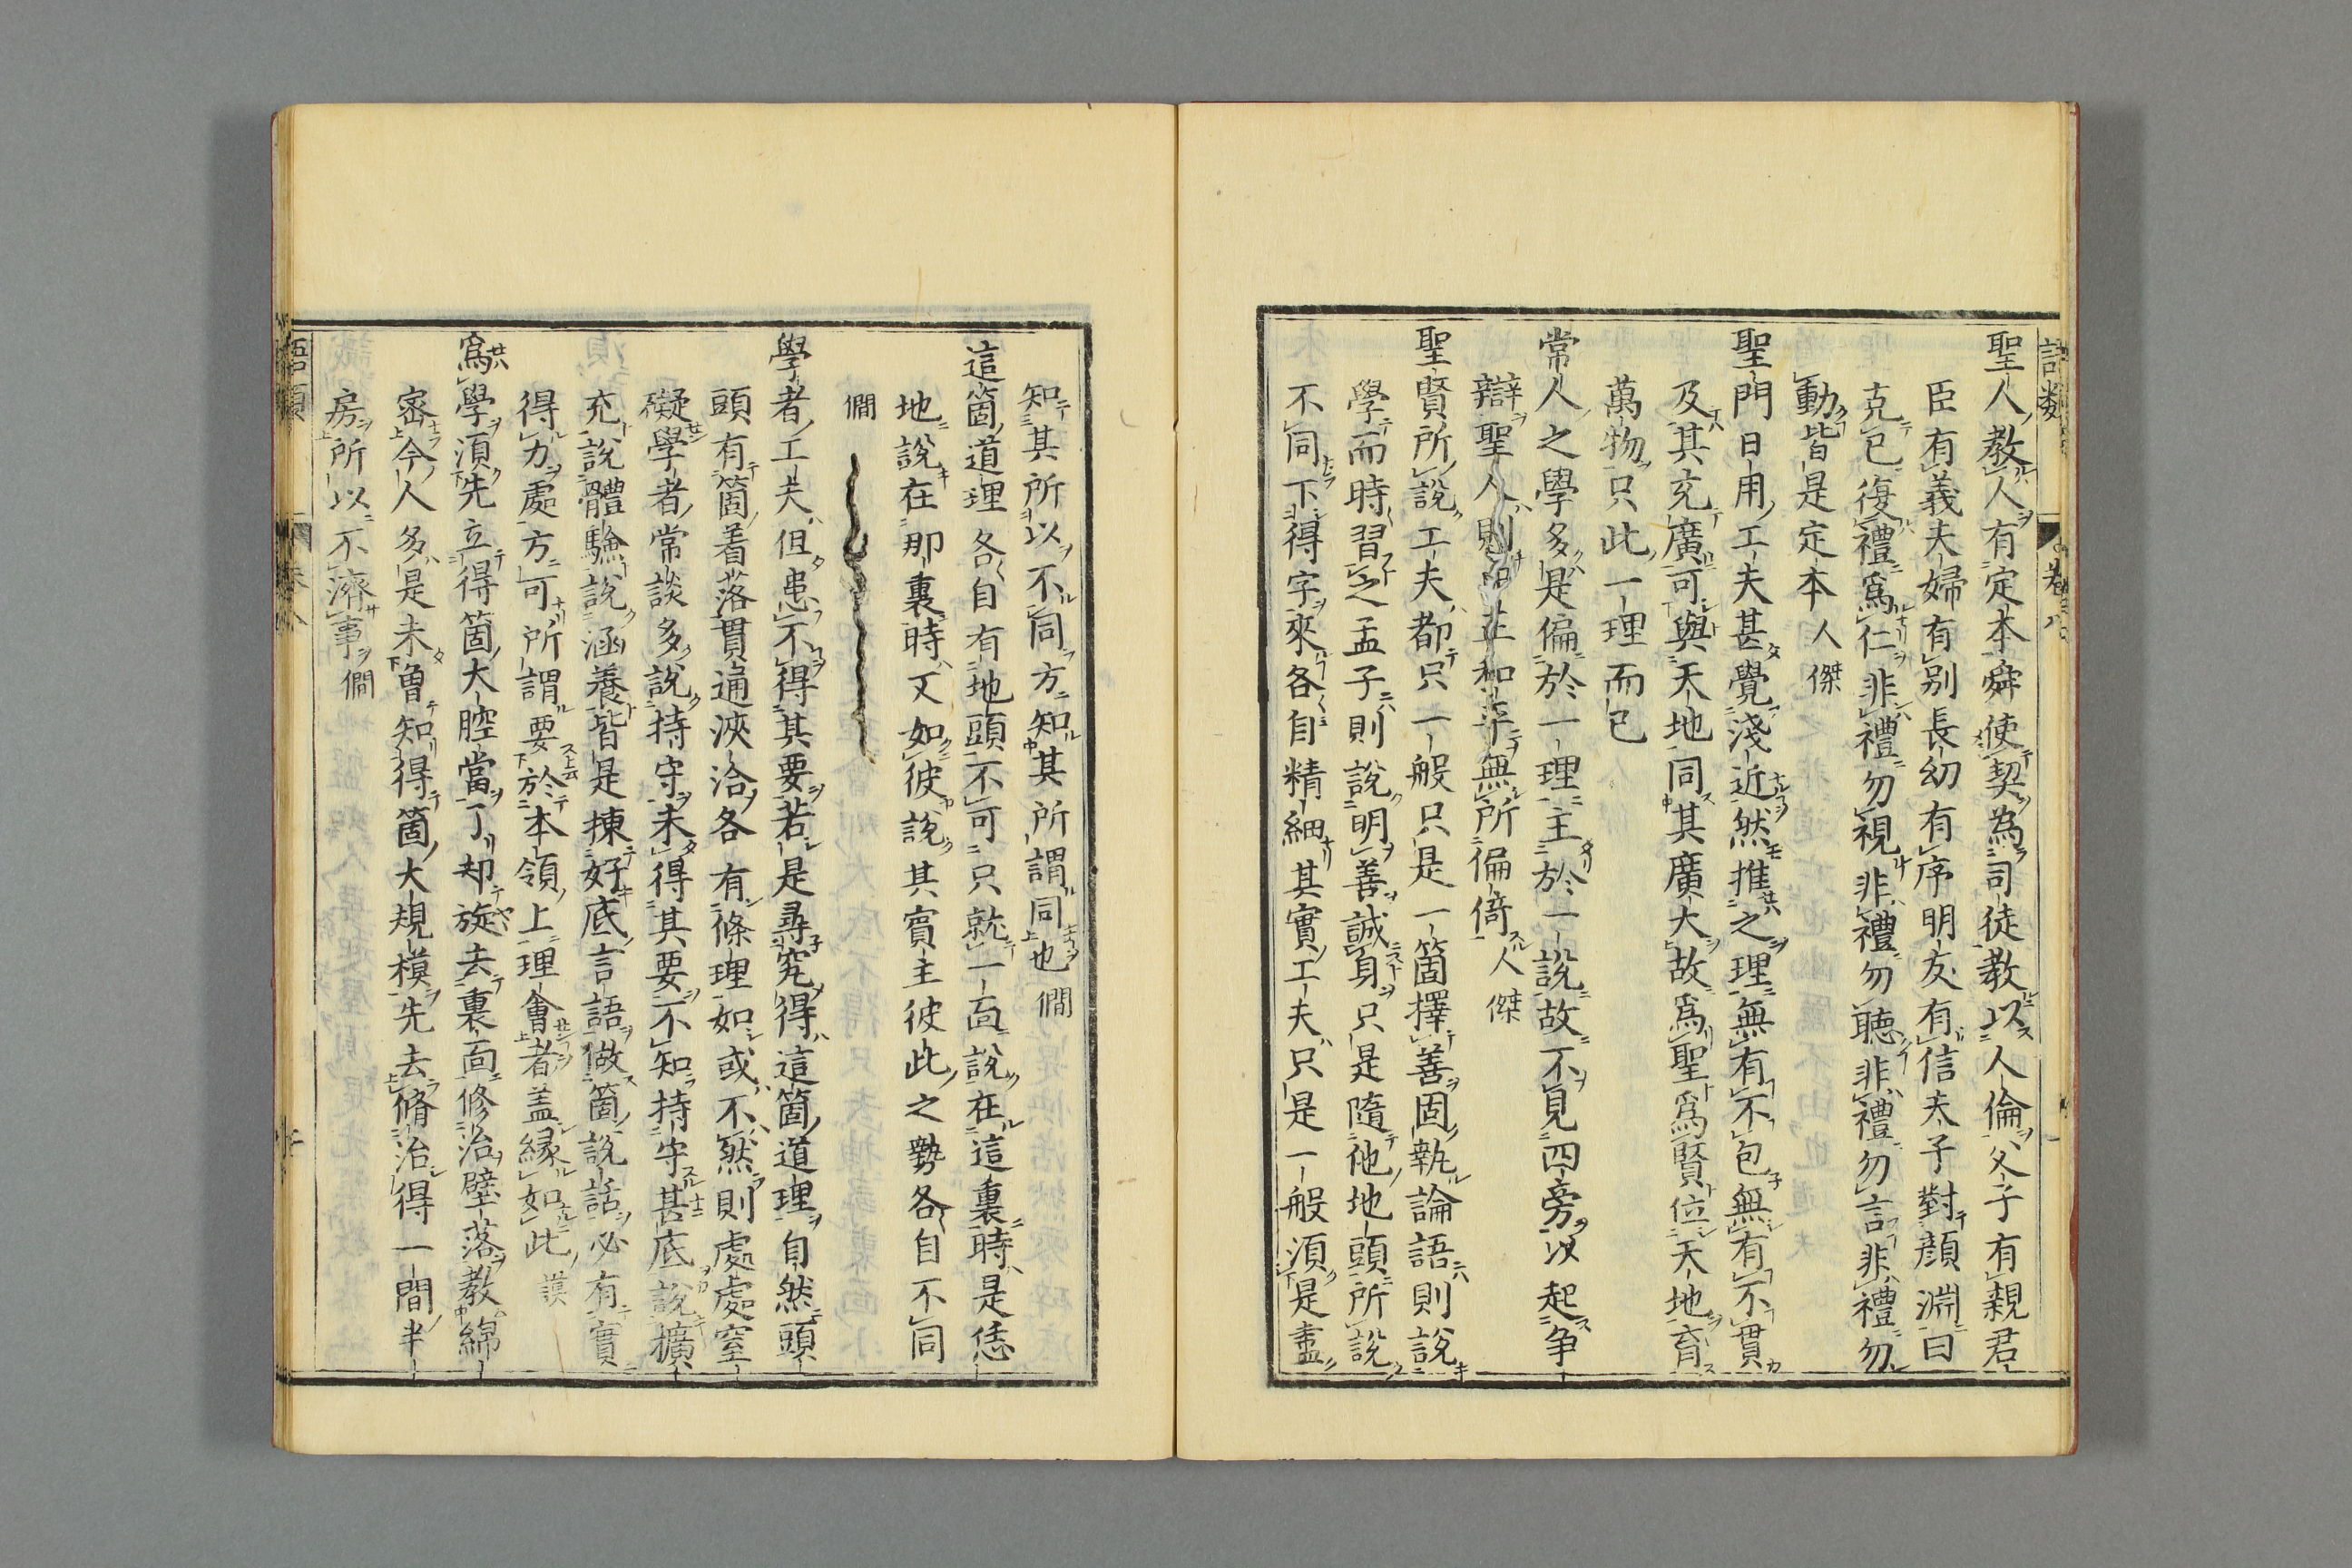 語類
卷八
聖人教人有定本舜使契為司徒教以人倫父子有親君
臣有義夫婦有別長幼有序明友有信夫子對顏淵曰
克己復禮爲仁非禮勿視非禮勿聽非禮勿言非禮勿
動皆是定本人傑
聖門日用工夫甚覺淺近然推之理無有不包無有不貫
及其充廣可與天地同其廣大故爲聖爲賢位天地育
萬物只此一理而已
常人之學多是偏於一理主於一說故不見四旁以起争
辯聖人則中正和平無所偏倚人傑
聖賢所說工夫都只一般只是一箇擇善固執論語則說
學而時習之孟子則說明善誠身只是隨他地頭所說
不同下得字來各自精細其實工夫只是一般湏是盡
知其所以不同方知其所謂同也僩
這箇道理各自有地頭不可只就一靣說在這裏時是恁
地說在那裏時又如彼說其賓主彼此之勢各自不同
僩
學者工夫但患不得其要若是尋究得這箇道理自然頭
頭有箇着落貫通浹洽各有條理如或不然則處處窒
礙學者常談多說持守未得其要不知持守甚底說擴
充說體驗說涵養皆是揀好底言語做箇說話必有實
得力處方可所謂要於本領上理會者盖縁如此謨
爲學湏先立得箇大腔當了却旋去裏靣修治壁落教綿
密今人多是未曾知得箇大規模先去脩治得一間半
房所以不濟事僩
語類
卷八